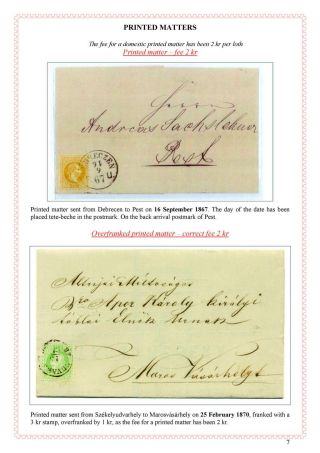 PRINTED MATTERS
The fee for a domestic printed matter has been 2 kr per loth
Printed matter – fee 2 kr
Herrn
Andreas Sachslehner
Pest
DEBRECZEN
67
Printed matter sent from Debrecen to Pest on 16 September 1867. The day of the date has been
placed tete-beche in the postmark. On the back arrival postmark of Pest.
Overfranked printed matter – correct fee 2 kr
Báro Apor Károly királyi
táblai Elnök Urnak
Maros Vásárhelyt
Printed matter sent from Székelyudvarhely to Marosvásárhely on 25 February 1870, franked with a
3 kr stamp, overfranked by 1 kr, as the fee for a printed matter has been 2 kr.
7